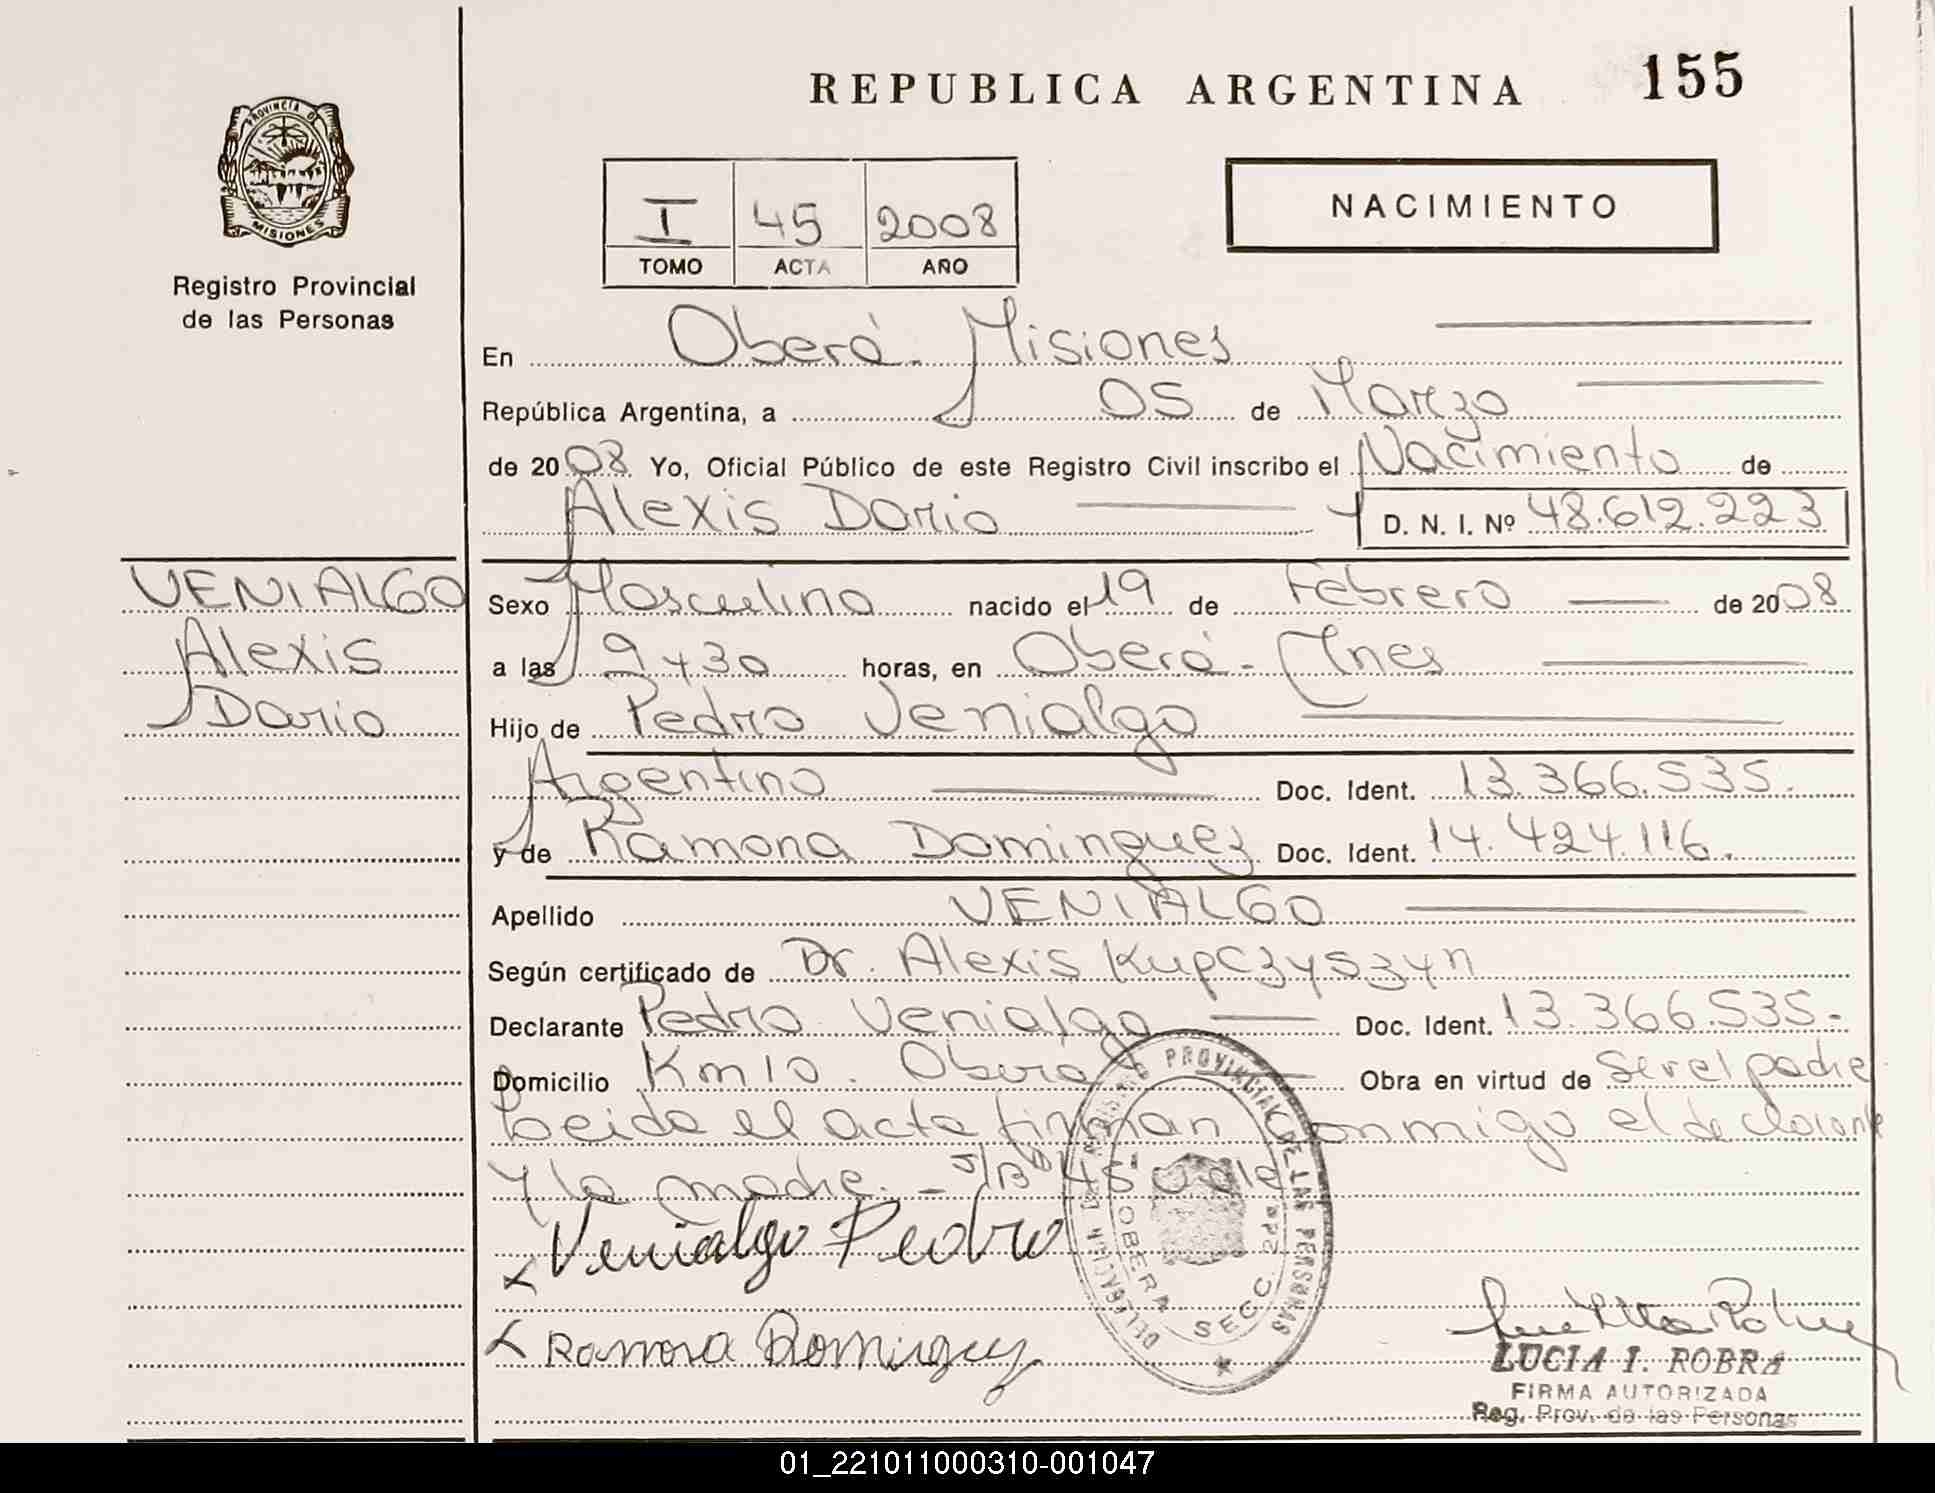 REPUBLICA ARGENTINA 155
PROVINCIA DE
MISIONES
Registro Provincial
de las Personas
I 45 2008
TOMO ACTA AÑO
NACIMIENTO
En Oberá - Misiones
República Argentina, a 05 de Marzo
de 2008 Yo, Oficial Público de este Registro Civil inscribo el Nacimiento de
Alexis Dario D. N. I. Nº 48.612.223
VENIALGO
Alexis
Dario
Sexo Masculino nacido el 19 de Febrero de 2008
a las 9 y 30 horas, en Oberá - Mnes
Hijo de Pedro Venialgo
Argentino Doc. Ident. 13.366.535.
y de Ramona Dominguez Doc. Ident. 14.424.116.
Apellido VENIALGO
Según certificado de Dr. Alexis Kupczyszyn
Declarante Pedro Venialgo Doc. Ident. 13.366.535.
Domicilio Km 10. Oberá Obra en virtud de ser el padre
Leida el acta firman conmigo el declarante
y la madre. - S/R "45" vale
Venialgo Pedro
Ramona Dominguez
DELEGACION DEL REGISTRO PROVINCIAL DE LAS PERSONAS
OBERA SECC. 2da
LUCIA I. ROBRA
FIRMA AUTORIZADA
Reg. Prov. de las Personas
01_221011000310-001047